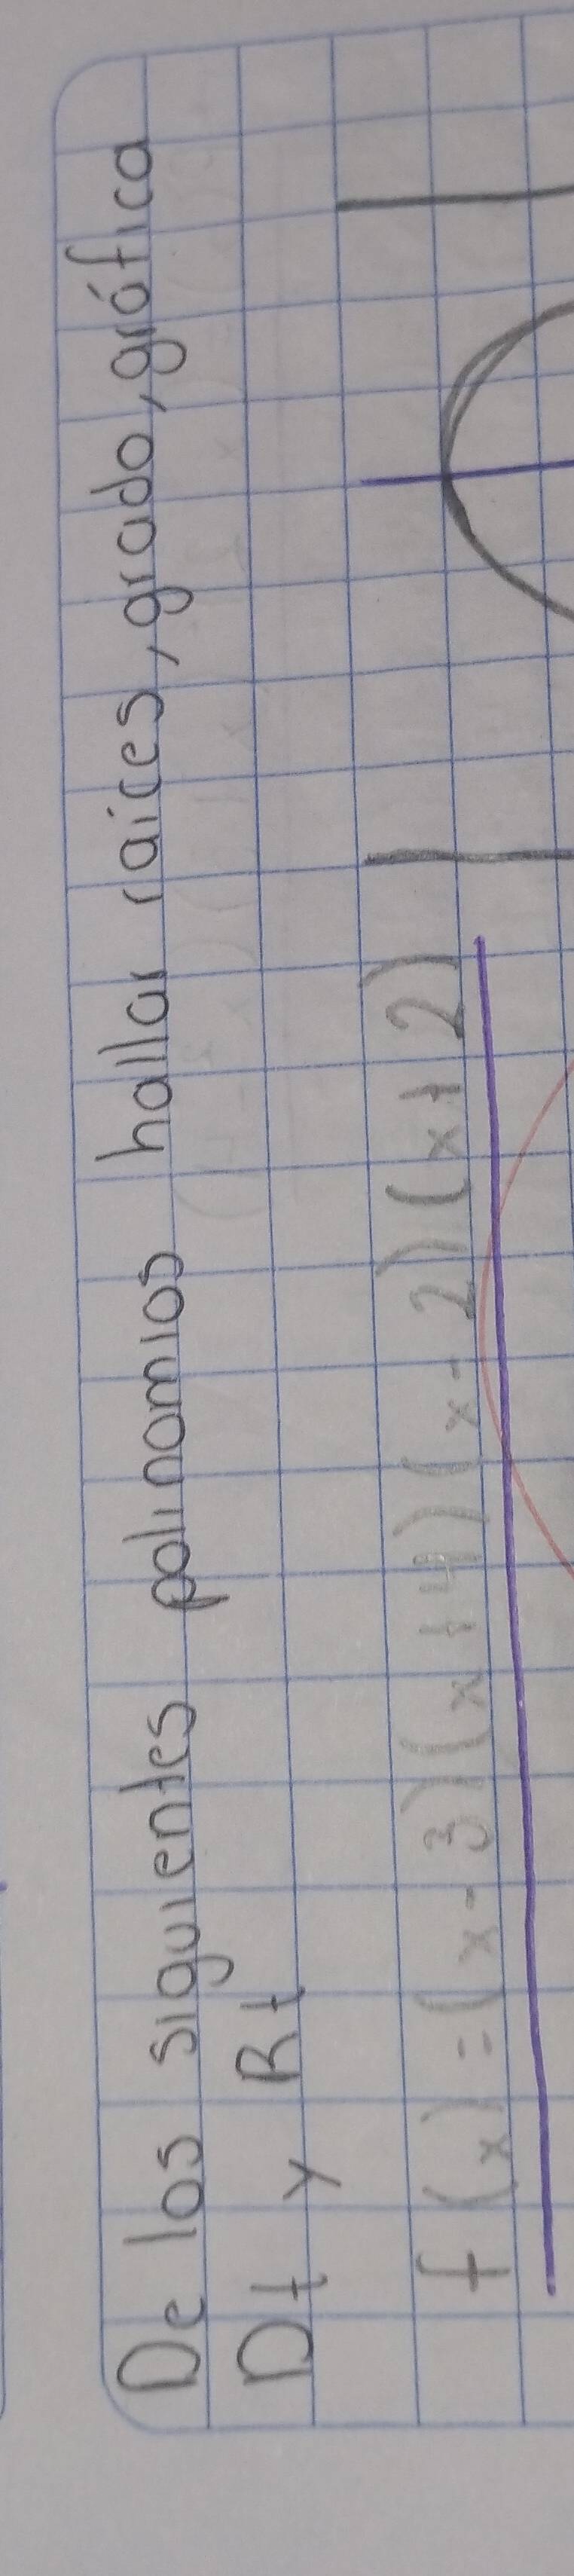 De los siguientes polinomios hallar raíces, grado, gráfica
Df y Rf
f(x) = (x - 3)(x + 4)(x - 2)(x + 2)